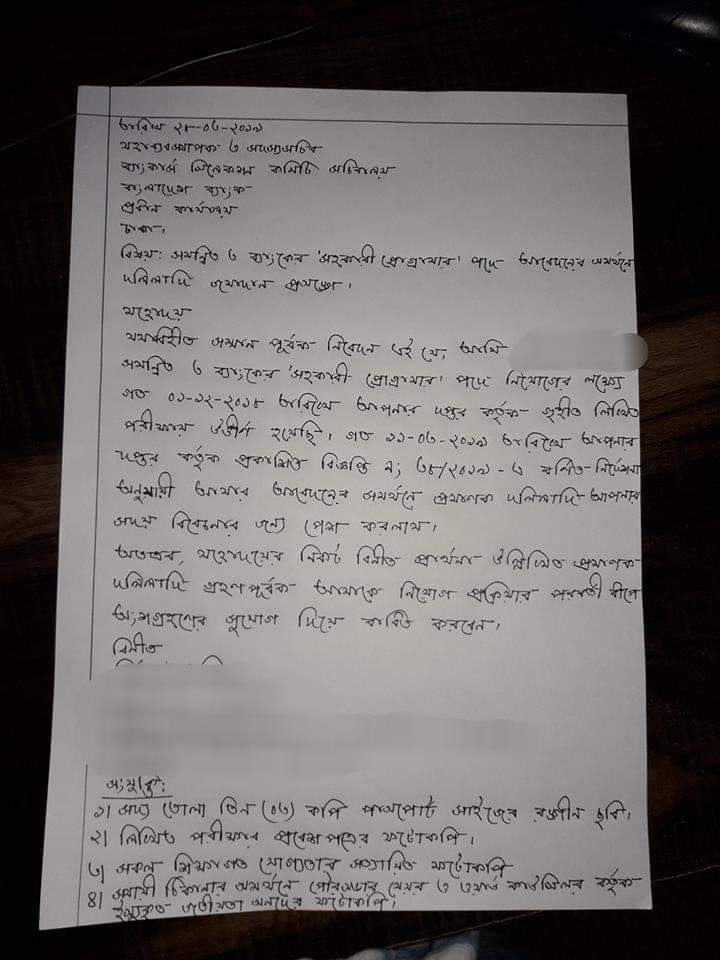 তারিখ ২৮-০৩-২০১৯
মহাব্যবস্থাপক ও সদস্যসচিব
ব্যাংকার্স সিলেকশন কমিটি সচিবালয়
বাংলাদেশ ব্যাংক
প্রধান কার্যালয়
ঢাকা।
বিষয়: সমন্বিত ৩ ব্যাংকের 'সহকারী প্রোগ্রামার' পদে আবেদনের সমর্থনে
দলিলাদি জমাদান প্রসঙ্গে।
মহোদয়
যথাবিহীত সম্মান পূর্বক নিবেদন এই যে, আমি
সমন্বিত ৩ ব্যাংকের 'সহকারী প্রোগ্রামার' পদে নিয়োগের লক্ষ্যে
গত ০১-১২-২০১৮ তারিখে আপনার দপ্তর কর্তৃক গৃহীত লিখিত
পরীক্ষায় উত্তীর্ণ হয়েছি। গত ১১-০৩-২০১৯ তারিখে আপনার
দপ্তর কর্তৃক প্রকাশিত বিজ্ঞপ্তি নং ৩৮/২০১৯-এ বর্নিত নির্দেশনা
অনুযায়ী আমার আবেদনের সমর্থনে প্রমাণক দলিলাদি আপনার
সদয় বিবেচনার জন্য পেশ করলাম।
অতএব, মহোদয়ের নিকট বিনীত প্রার্থনা উল্লিখিত প্রমাণক
দলিলাদি গ্রহণপূর্বক আমাকে নিয়োগ প্রক্রিয়ার পরবর্তী ধাপে
অংশগ্রহণের সুযোগ দিয়ে বাধিত করবেন।
বিনীত
সংযুক্তি:
১| সদ্য তোলা তিন (০৩) কপি পাসপোর্ট সাইজের রঙ্গীন ছবি।
২| লিখিত পরীক্ষার প্রবেশপত্রের ফটোকপি।
৩| সকল শিক্ষাগত যোগ্যতার সত্যায়িত ফটোকপি
৪| স্থায়ী ঠিকানার সমর্থনে পৌরসভার মেয়র ও ওয়ার্ড কাউন্সিলর কর্তৃক
ইস্যুকৃত জাতীয়তা সনদের ফটোকপি।